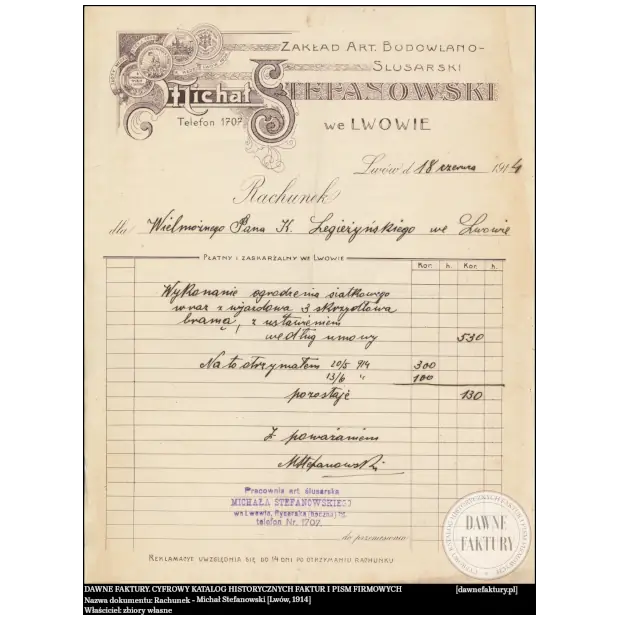 ZAKŁAD ART. BUDOWLANO-
ŚLUSARSKI
Michał STEFANOWSKI
Telefon 1707
we LWOWIE
Lwów d 18 czerwca 1914
Rachunek
dla Wielmożnego Pana K. Legieżyńskiego we Lwowie
PŁATNY I ZASKARŻALNY WE LWOWIE
Kor. h. Kor. h.
Wykonanie ogrodzenia siatkowego
wraz z wjazdową 3 skrzydłową
bramą, z ustawieniem
według umowy 530
Na to otrzymałem 20/5 914 300
13/6 " 100
pozostaje 130
Z poważaniem
MStefanowski
Pracownia art. ślusarska
MICHAŁA STEFANOWSKIEGO
we Lwowie, Rycerska
telefon Nr. 1707.
do przeniesienia
REKLAMACYE UWZGLĘDNIA SIĘ DO 14 DNI PO OTRZYMANIU RACHUNKU
DAWNE
FAKTURY
DAWNE FAKTURY. CYFROWY KATALOG HISTORYCZNYCH FAKTUR I PISM FIRMOWYCH [dawnefaktury.pl]
Nazwa dokumentu: Rachunek - Michał Stefanowski [Lwów, 1914]
Właściciel: zbiory własne